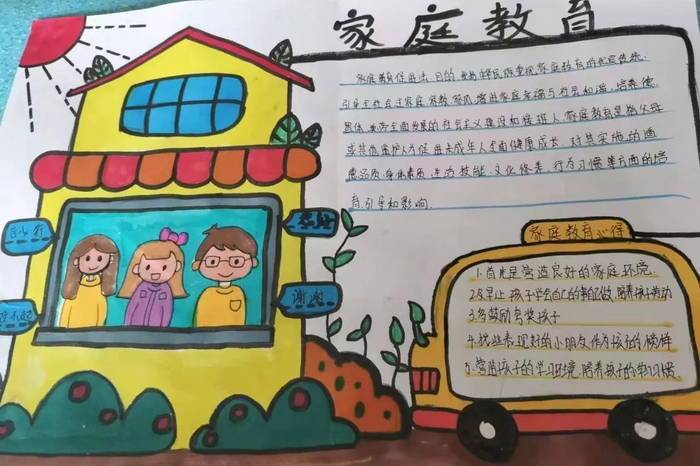 家庭教育
家庭教育促进法 目的 发扬中华民族重视家庭教育的优良传统,
引导全社会注重家庭 家教 家风,增进家庭幸福与社会和谐,培养德
智体美劳全面发展的社会主义建设和接班人,家庭教育是指父母
或其他监护人为促进未成年人全面健康成长,对其实施的道
德品质.身体素质.生活技能.文化修养.行为习惯等方面的培
育.引导和影响.
家庭教育心得
1.首先是营造良好的家庭环境.
2.及早让孩子学会自己的事自己做,培养孩子劳动
3.多鼓励夸奖孩子
4.找些表现好的小朋友作为孩子的榜样
5.营造孩子的学习环境,培养孩子的学习习惯.
谢谢
对不起